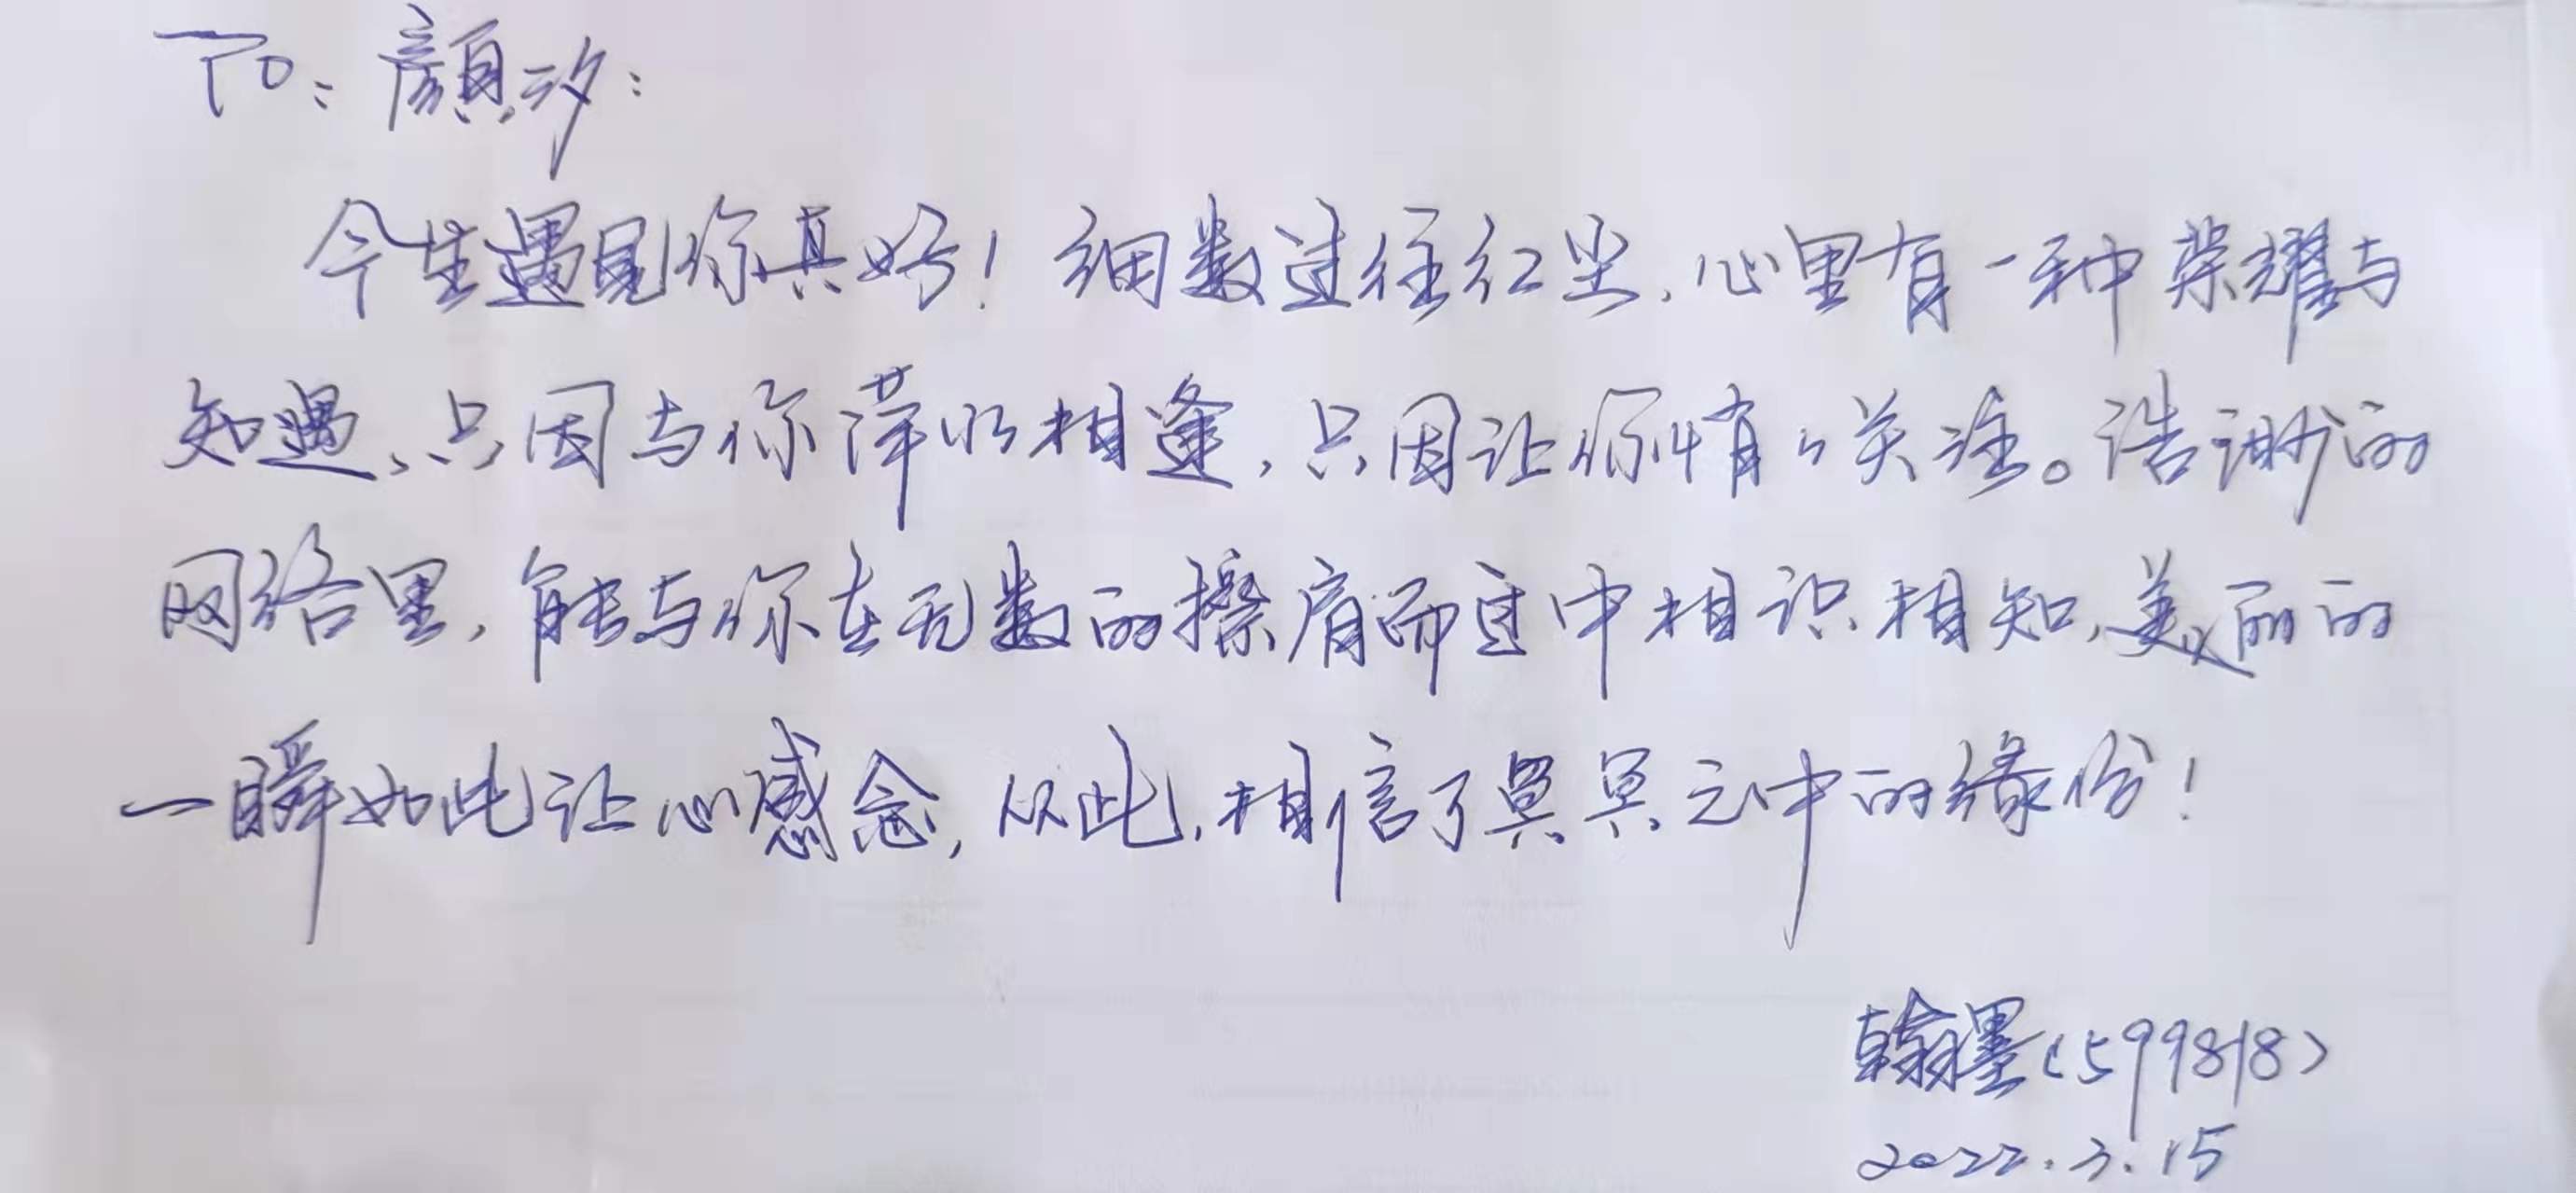 To：颜汐：
今生遇见你真好！细数过往红尘，心里有一种荣耀与
知遇、只因与你萍水相逢，只因让你情々关注。浩渺的
网络里，能与你在无数的擦肩而过中相识相知，美丽的
一瞬如此让心感念，从此，相信了冥冥之中的缘份！
翰墨（599818）
2022.3.15